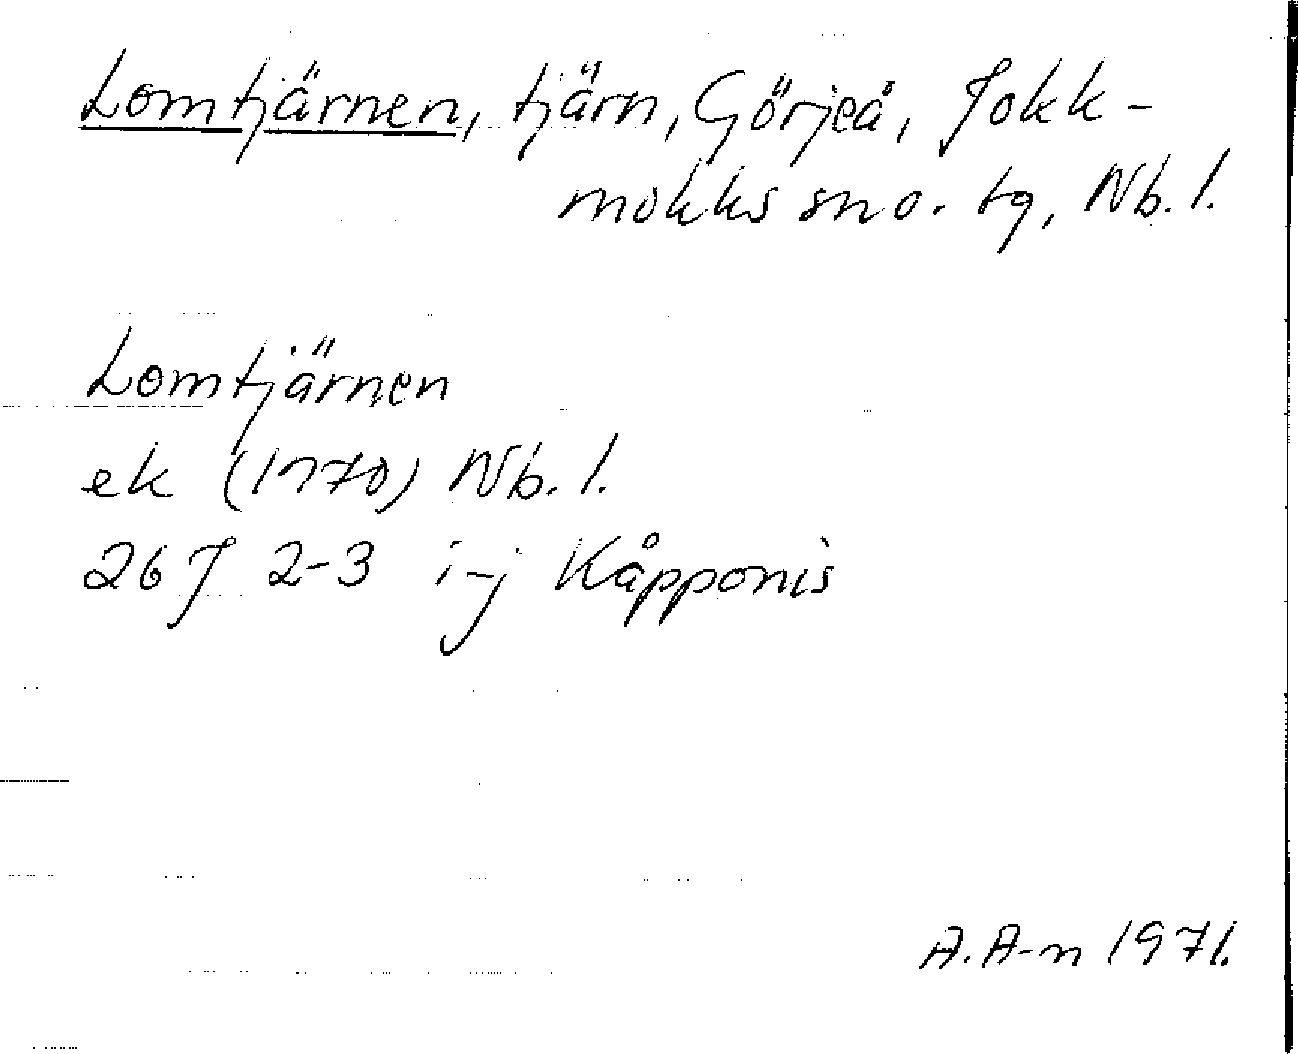 Lomtjärnen, tjärn, Görjeå, Jokk-
mokks sn o. tg, Nb. l.
Lomtjärnen
ek (1970) Nb. l.
26 J 2-3 i-j Kåpponis
A. A-n 1971.